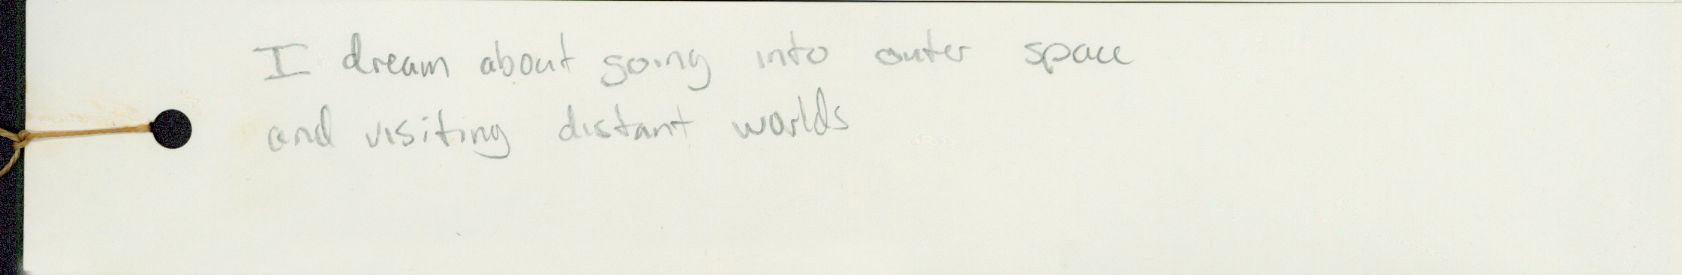 I dream about going into outer space
and visiting distant worlds